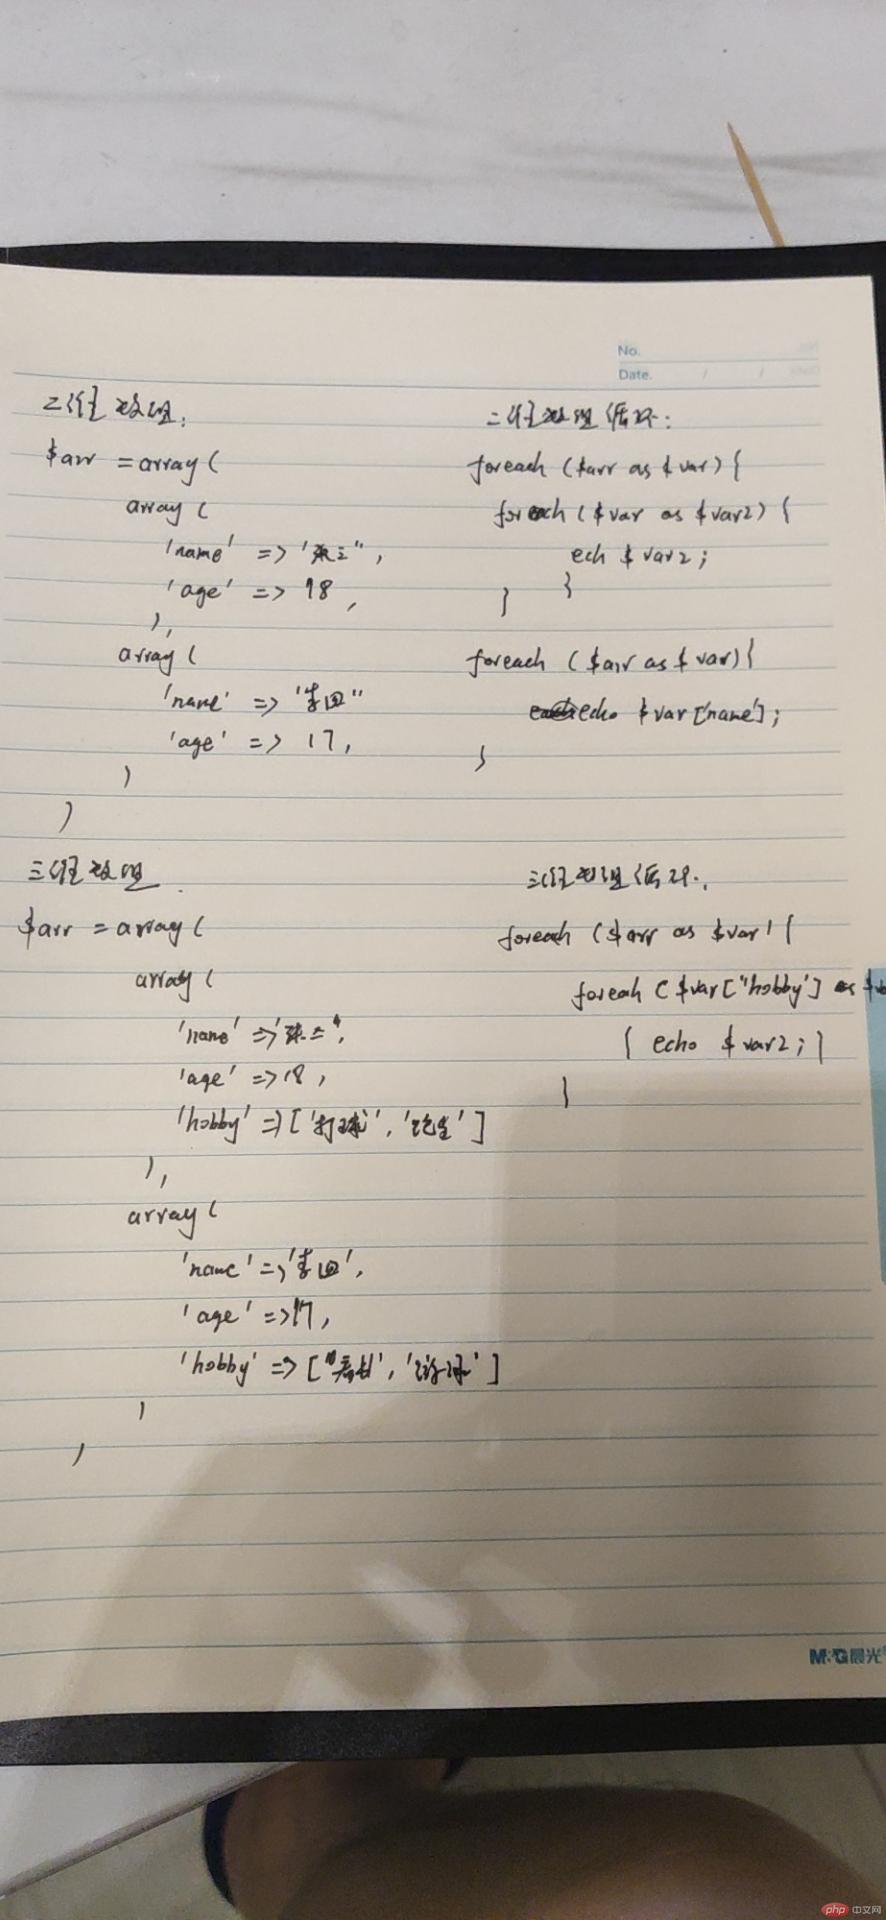 No.
Date. / /
二维数组:
$arr = array (
array (
'name' => '张三",
'age' => 18,
),
array (
'name' => '李四"
'age' => 17,
)
)
二维数组循环:
foreach ($arr as $var) {
foreach ($var as $var2) {
ech $var2;
}
}
foreach ($arr as $var) {
echo $var['name'];
}
三维数组.
$arr = array (
array (
'name' => '张三",
'age' => 18,
'hobby' => ['打球', '跑步']
),
array (
'name' => '李四',
'age' => 17,
'hobby' => ["看书', ']
)
)
三维数组循环.
foreach ($arr as $var) {
foreach ($var["hobby'] as $va
{ echo $var2; }
}
M&G晨光
php 中文网